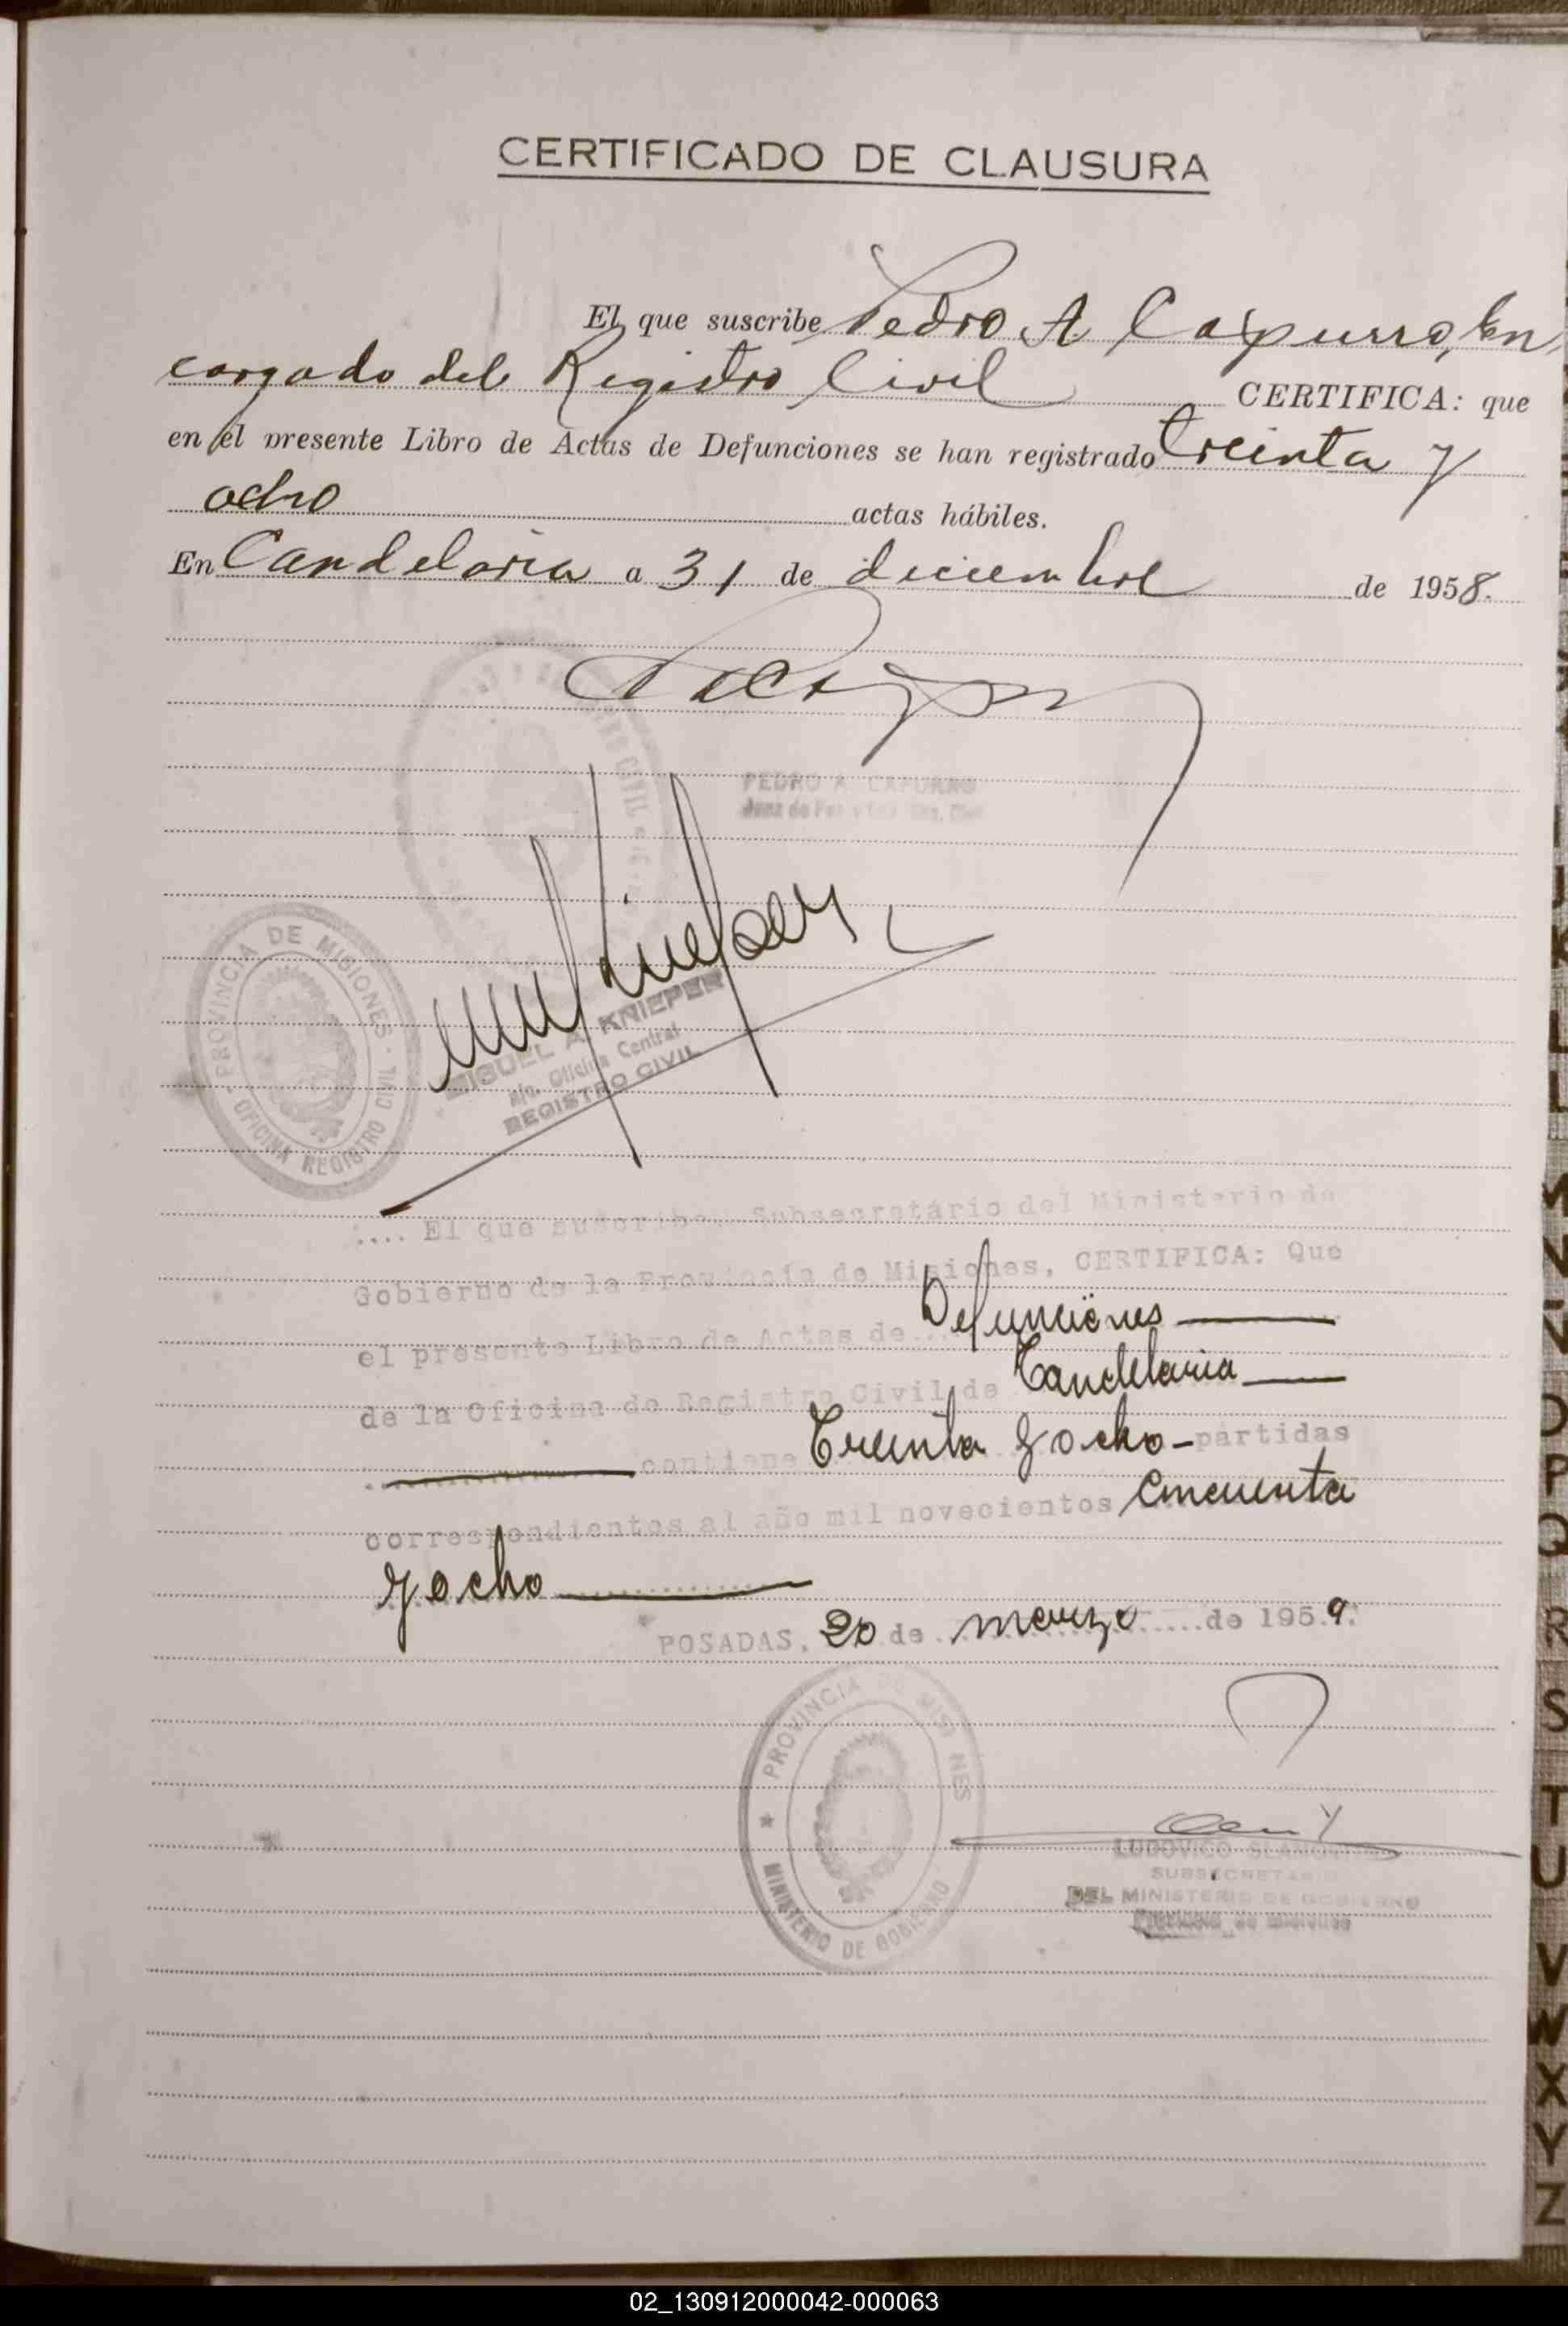 CERTIFICADO DE CLAUSURA
El que suscribe Pedro A Capurro, En
cargado del Registro Civil CERTIFICA: que
en el presente Libro de Actas de Defunciones se han registrado treinta y
ocho actas hábiles.
En Candelaria a 31 de diciembre de 1958.
PEDRO A. CAPURRO
Juez de Paz
PROVINCIA DE MISIONES
OFICINA REGISTRO CIVIL
MIGUEL A. KNIEPER
a/c. Oficina Central
REGISTRO CIVIL
.... El que suscribe, Subsecretário del Ministerio de
Gobierno de la Provincia de Misiones, CERTIFICA: Que
el presente Libro de Actas de Defunciones
de la Oficina de Registro Civil de Candelaria
contiene Treinta y ocho - partidas
correspondientes al año mil novecientos cincuenta
y ocho
POSADAS, 20 de marzo de 1959.
PROVINCIA DE MISIONES
MINISTERIO DE GOBIERNO
LUDOVICO
SUBSECRETARIO
DEL MINISTERIO DE GOBIERNO
Provincia de Misiones
J
K
L
LL
M
N
Ñ
O
P
Q
R
S
T
U
V
W
X
Y
Z
02_130912000042-000063